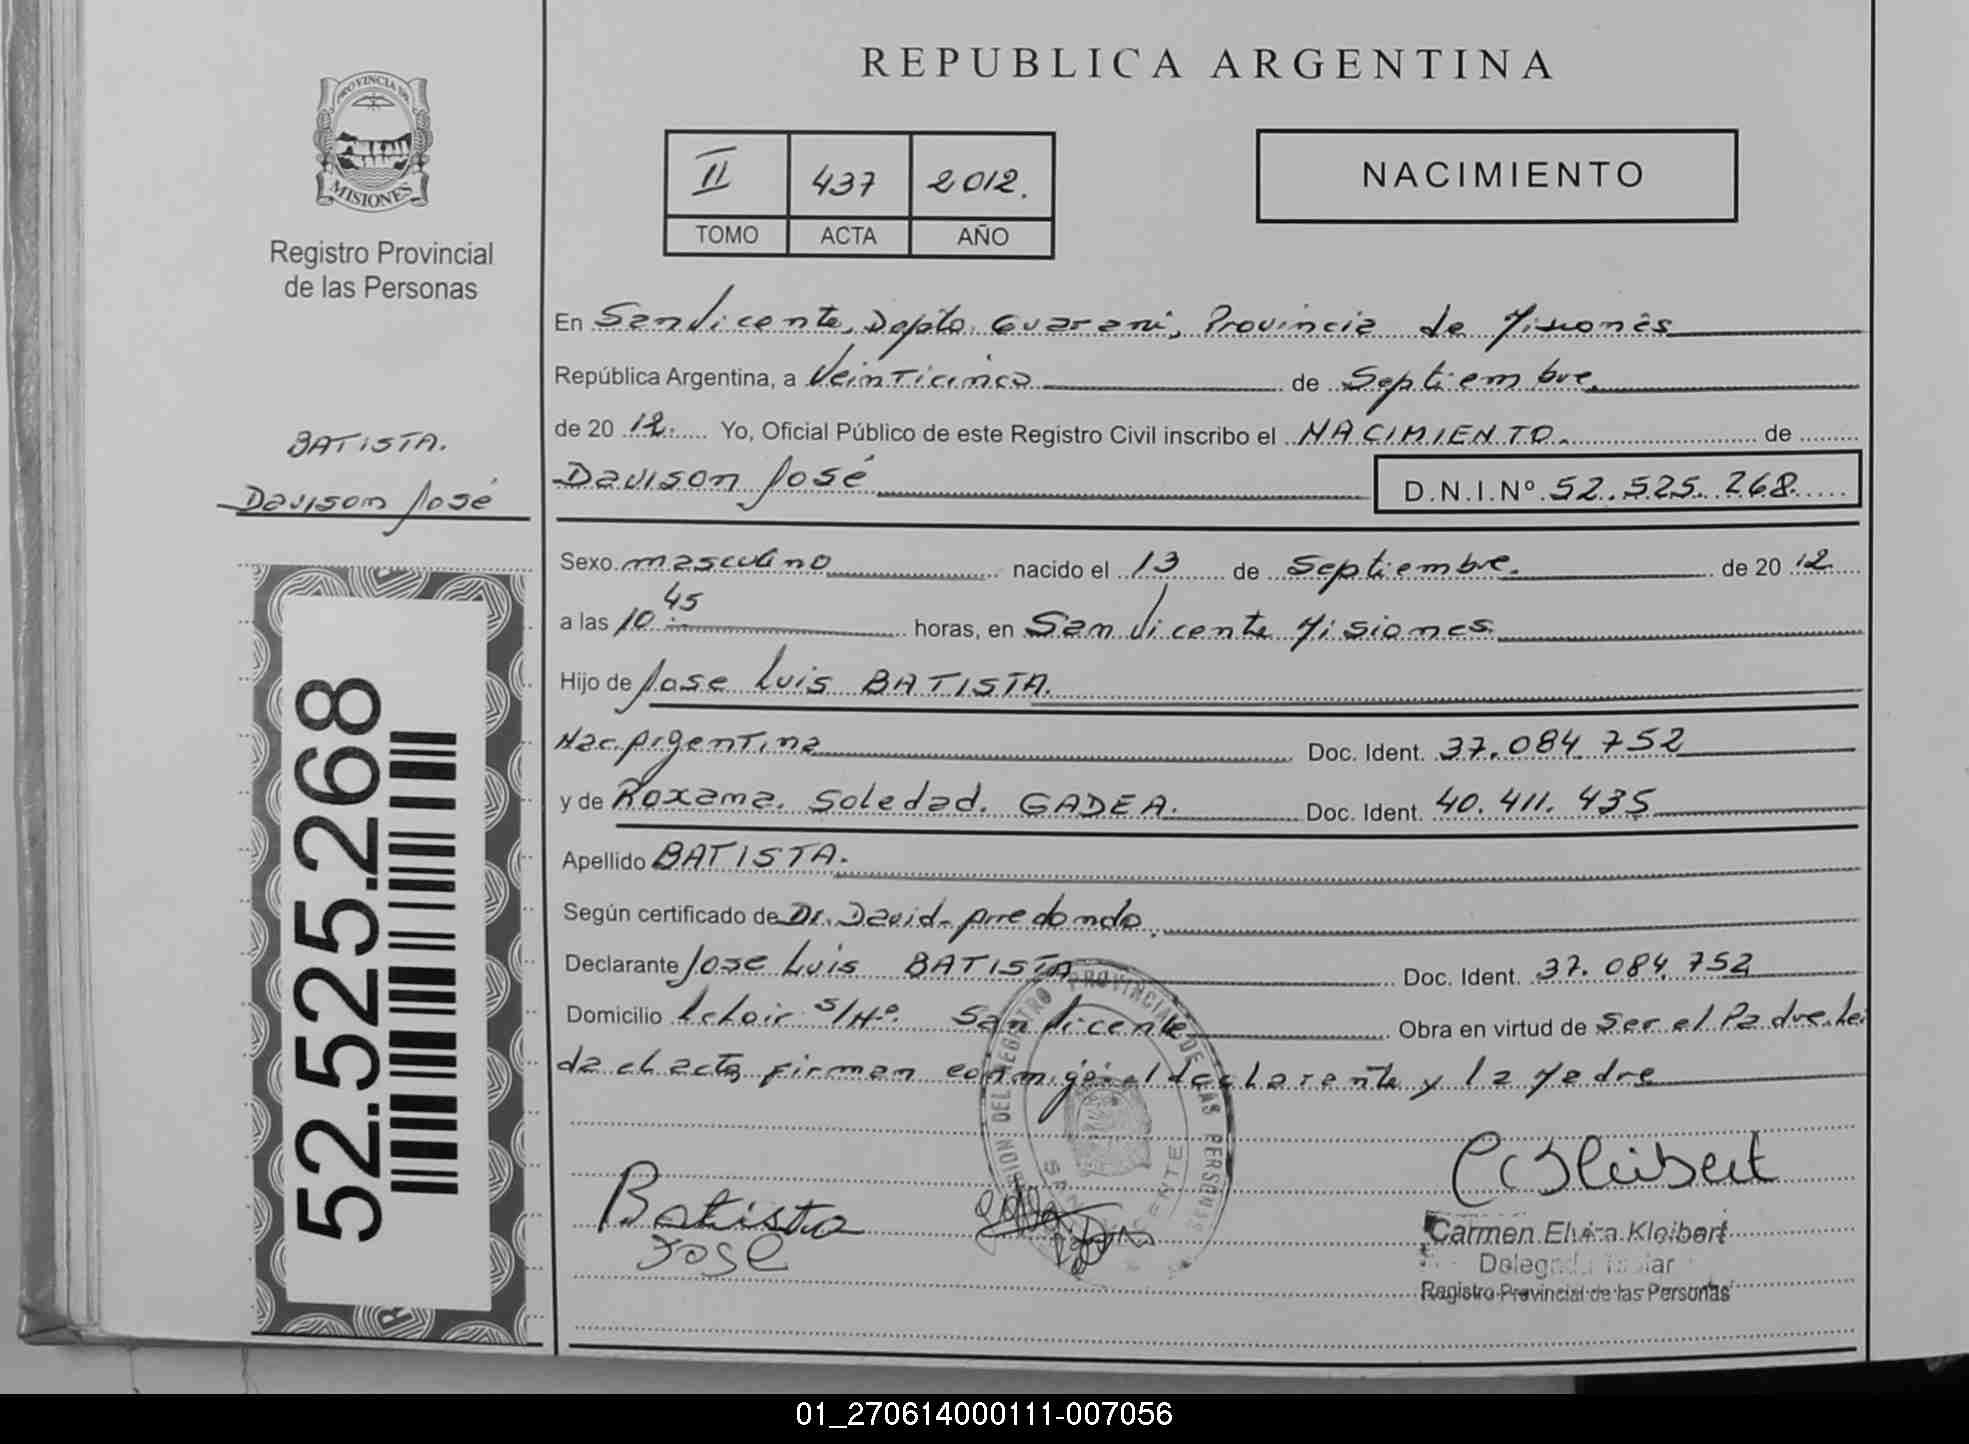 REPUBLICA ARGENTINA
PROVINCIA DE
MISIONES
Registro Provincial
de las Personas
II 437 2012.
TOMO ACTA AÑO
NACIMIENTO
BATISTA.
Davison José
52.525.268
En San Vicente, Depto. Guarani, Provincia de Misiones
República Argentina, a Veinticinco de Septiembre
de 20 12. Yo, Oficial Público de este Registro Civil inscribo el NACIMIENTO. de
Davison José D.N.I.Nº 52.525.268
Sexo masculino nacido el 13 de Septiembre. de 20 12
a las 10:45 horas, en San Vicente Misiones.
Hijo de Jose Luis BATISTA.
Nac. Argentina Doc. Ident. 37.084.752
y de Roxana. Soledad. GADEA. Doc. Ident. 40.411.435
Apellido BATISTA.
Según certificado de Dr. David Arredondo.
Declarante Jose Luis BATISTA Doc. Ident. 37.084.752
Domicilio Leloir S/Nº. San Vicente Obra en virtud de Ser el Padre. Lei
da el acta, firman conmigo el declarante y la Madre
DEL REGISTRO PROVINCIAL DE LAS PERSONAS
Batista
Jose
C Kleibert
Carmen Elvira Kleibert
Registro Provincial de las Personas
01_270614000111-007056